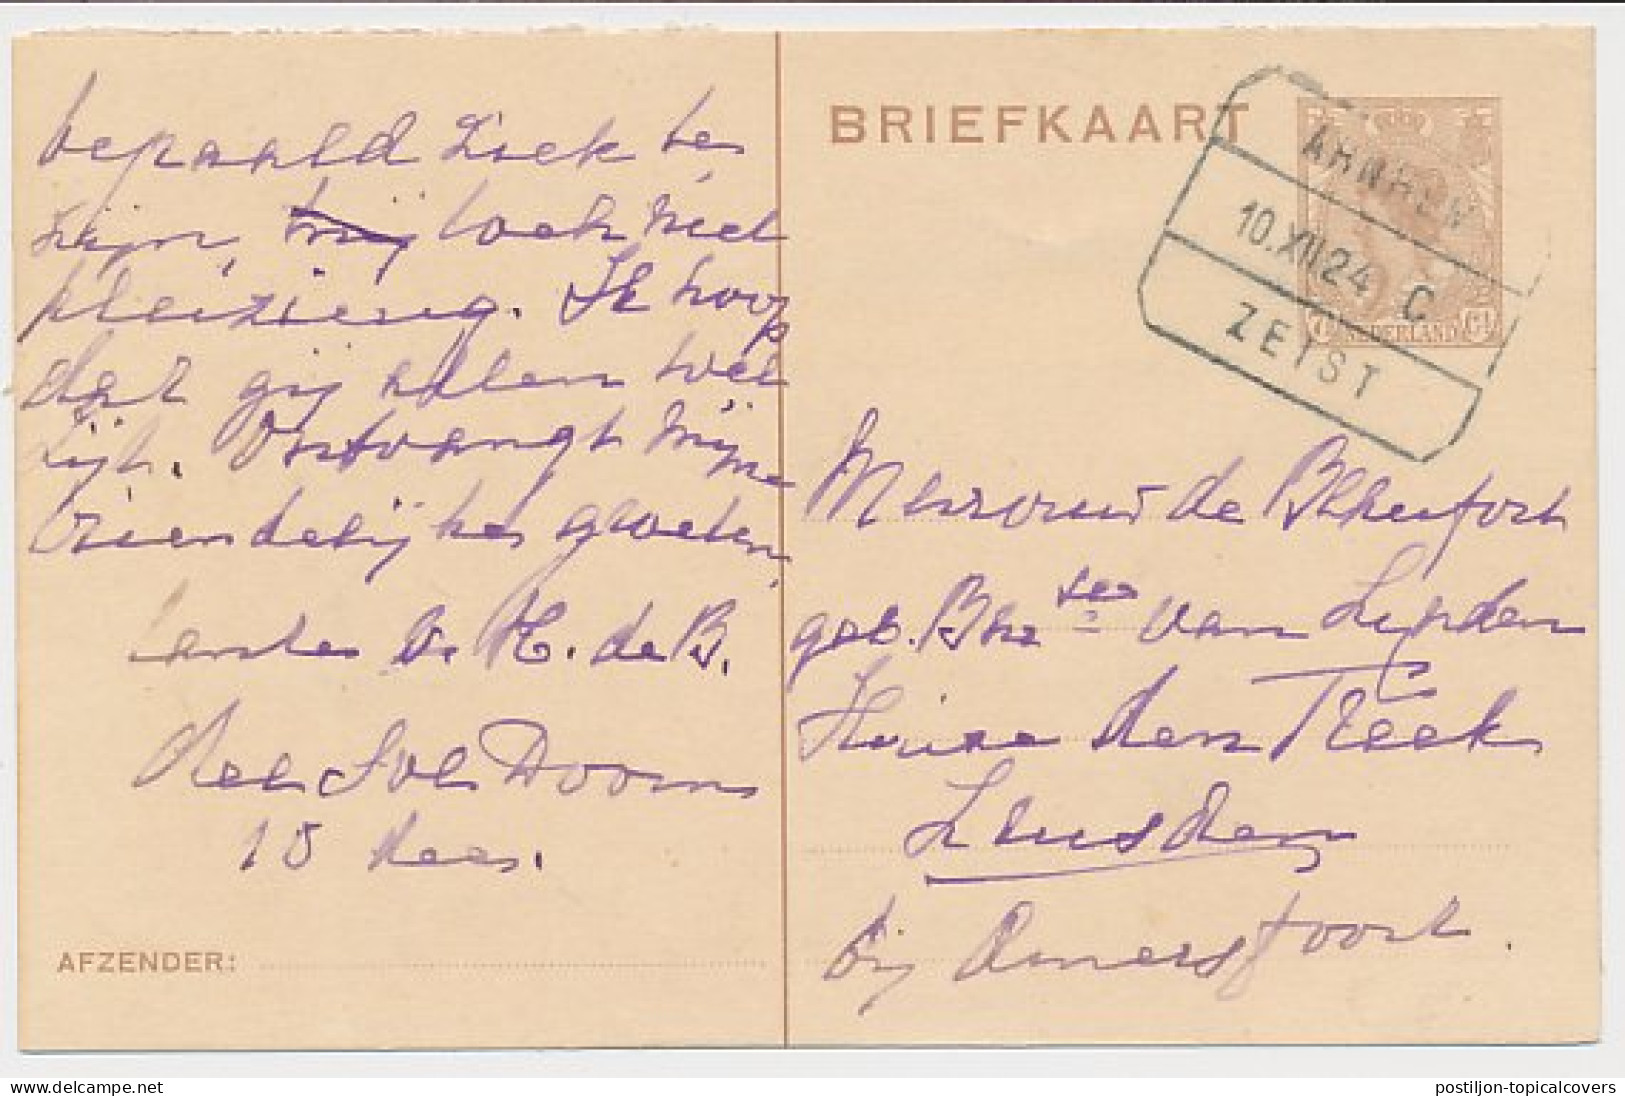 bepaald ziek te
zijn, toch niet
pleizierig. Ik hoop
dat gij allen wel
zijt. Ontvangt mijne
vriendelijke groeten,
v. H. de B.
Doorn
10 dec.
AFZENDER:
BRIEFKAART
ARNHEM
10.XII.24 C
ZEIST
NEDERLAND
Mevrouw de Beaufort
geb. Bnesse van Lynden
Huize den Treek
Leusden
bij Amersfoort.
postiljon-topicalcovers
www.delcampe.net